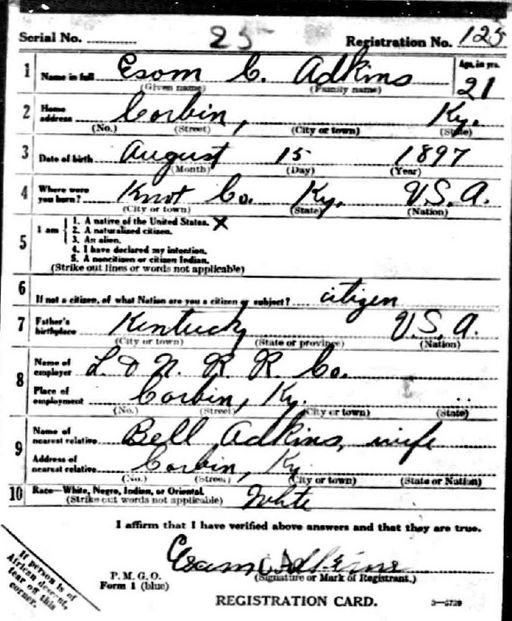 Serial No. 25 Registration No. 125
1 Name in full Esom C. Adkins Age, in yrs. 21
(Given name) (Family name)
2 Home address Corbin, Ky.
(No.) (Street) (City or town) (State)
3 Date of birth August 15 1897
(Month) (Day) (Year)
4 Where were you born? Knot Co. Ky. U.S.A.
(City or town) (State) (Nation)
5 I am
1. A native of the United States. X
2. A naturalized citizen.
3. An alien.
4. I have declared my intention.
5. A noncitizen or citizen Indian.
(Strike out lines or words not applicable)
6 If not a citizen, of what Nation are you a citizen or subject? citizen
7 Father's birthplace Kentucky U.S.A.
(City or town) (State or province) (Nation)
8 Name of employer L. & N. R R. Co.
Place of employment Corbin, Ky.
(No.) (Street) (City or town) (State)
9 Name of nearest relative Bell Adkins, wife
Address of nearest relative Corbin, Ky
(No.) (Street) (City or town) (State or Nation)
10 Race—White, Negro, Indian, or Oriental. White
(Strike out words not applicable)
I affirm that I have verified above answers and that they are true.
Esom C Adkins
P. M. G. O.
Form 1 (blue) (Signature or Mark of Registrant.)
REGISTRATION CARD. 3—5729
If person is of
African descent,
tear off this
corner.